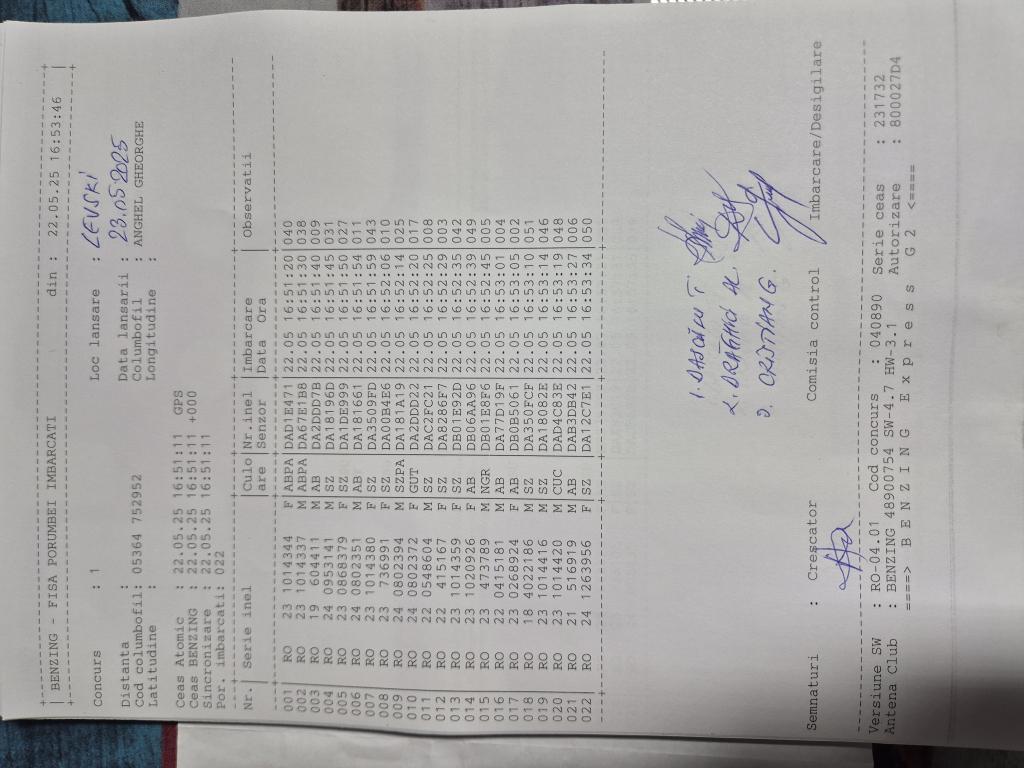 +-----------------------------------------------------------------+
| BENZING - FISA PORUMBEI IMBARCATI din : 22.05.25 16:53:46 |
+-----------------------------------------------------------------+
Concurs : 1 Loc lansare : LEVSKI
Distanta : Data lansarii : 23.05.2025
Cod columbofil: 05364 752952 Columbofil : ANGHEL GHEORGHE
Latitudine : Longitudine :
Ceas Atomic : 22.05.25 16:51:11 GPS
Ceas BENZING : 22.05.25 16:51:11 +000
Sincronizare : 22.05.25 16:51:11
Por. imbarcati: 022
Nr.| Serie inel |Culo|Nr.inel |Imbarcare | Observatii
|are |Senzor |Data Ora |
001| RO 23 1014344 F|ABPA|DAD1E471|22.05 16:51:20|040
002| RO 23 1014337 M|ABPA|DA67E1B8|22.05 16:51:30|038
003| RO 19 604411 M|AB |DA2DDD7B|22.05 16:51:40|009
004| RO 24 0953141 M|SZ |DA18196D|22.05 16:51:45|031
005| RO 23 0868379 F|SZ |DA1DE999|22.05 16:51:50|027
006| RO 24 0802351 M|AB |DA181661|22.05 16:51:54|011
007| RO 23 1014380 F|SZ |DA3509FD|22.05 16:51:59|043
008| RO 23 736991 F|SZ |DA00B4E6|22.05 16:52:06|010
009| RO 24 0802394 M|SZPA|DA181A19|22.05 16:52:14|025
010| RO 24 0802372 F|GUT |DA2DDD22|22.05 16:52:20|017
011| RO 22 0548604 M|SZ |DAC2FC21|22.05 16:52:25|008
012| RO 22 415167 F|SZ |DA8286F7|22.05 16:52:29|003
013| RO 23 1014359 F|SZ |DB01E92D|22.05 16:52:35|042
014| RO 23 1020926 F|AB |DB06AA96|22.05 16:52:39|049
015| RO 23 473789 M|NGR |DB01E8F6|22.05 16:52:45|005
016| RO 22 0415181 M|AB |DA77D19F|22.05 16:53:01|004
017| RO 23 0268924 F|AB |DB0B5061|22.05 16:53:05|002
018| RO 18 4022186 M|SZ |DA350FCF|22.05 16:53:10|051
019| RO 23 1014416 M|SZ |DA18082E|22.05 16:53:14|046
020| RO 23 1014420 M|CUC |DAD4C83E|22.05 16:53:19|048
021| RO 21 516919 M|AB |DAB3DB42|22.05 16:53:27|006
022| RO 24 1263956 F|SZ |DA12C7E1|22.05 16:53:34|050
1. DASCALU T
2. DRAGHICI AL
3. CRISTIAN G.
Semnaturi : Crescator Comisia control Imbarcare/Desigilare
Versiune SW : RO-04.01 Cod concurs : 040890 Serie ceas : 231732
Antena Club : BENZING 48900754 SW-4.7 HW-3.1 Autorizare : 800027D4
====> B E N Z I N G E x p r e s s G 2 <====